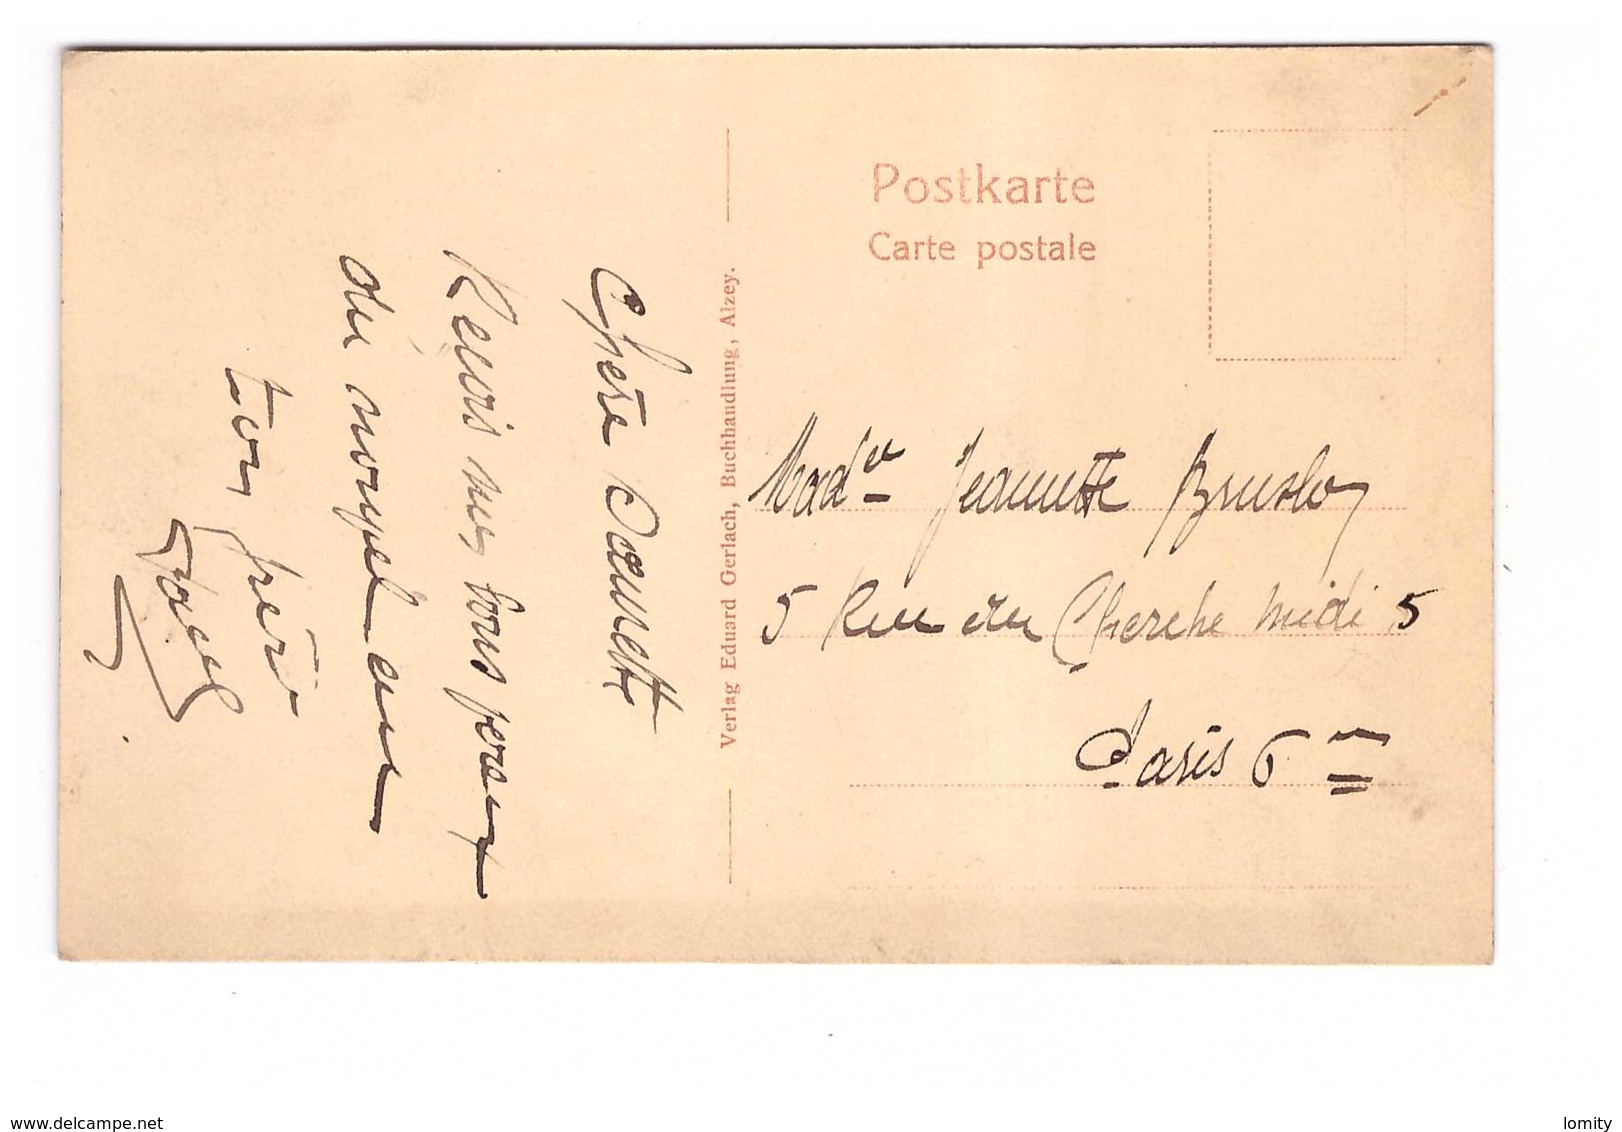 Postkarte
Carte postale
Verlag Eduard Gerlach, Buchhandlung, Alzey.
Chère Jeanette
Reçois mes bons
du nouvel an
ton frère
Mad^e Jeannette
5 Rue du Cherche Midi 5
Paris 6
www.delcampe.net
lomity